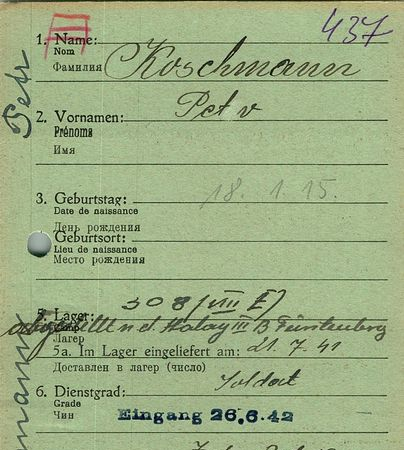 437
III
1. Name: Koschmann
Nom
Фамилия
Petr
2. Vornamen: Petr
Prénoms
Имя
3. Geburtstag: 18. 1. 15.
Date de naissance
День рождения
Geburtsort:
Lieu de naissance
Место рождения
5. Lager: 308 (VIII E)
abgestellt n. d. Stalag III B Fürstenberg
Лагерь
5a. Im Lager eingeliefert am: 21. 7. 41
Доставлен в лагерь (число)
6. Dienstgrad: Soldat
Grade
Чин
Eingang 26.6.42
mann